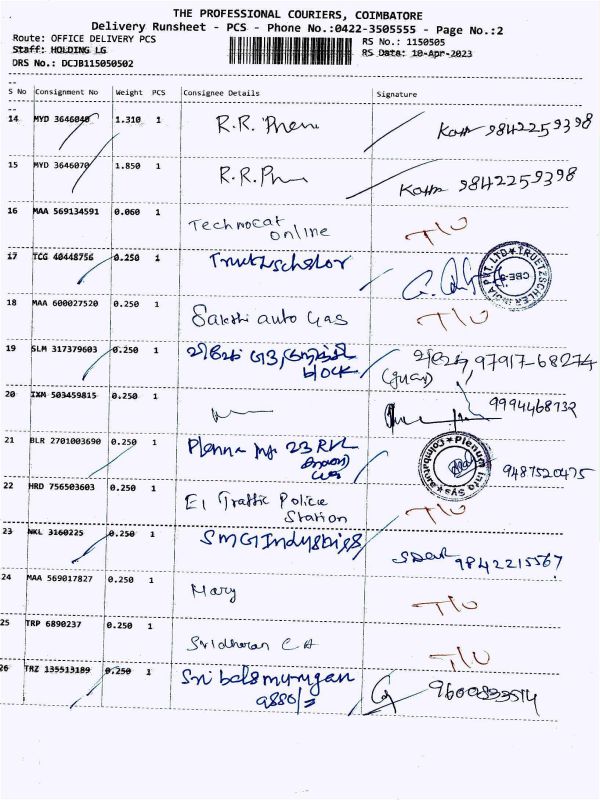 THE PROFESSIONAL COURIERS, COIMBATORE
Delivery Runsheet - PCS - Phone No.:0422-3505555 - Page No.:2
Route: OFFICE DELIVERY PCS RS No.: 1150505
Staff: HOLDING LG RS Date: 10-Apr-2023
DRS No.: DCJB115050502
S No Consignment No Weight PCS Consignee Details Signature
14 MYD 3646040 1.310 1 R.R. 9842259398
15 MYD 3646070 1.850 1 R.R. 9842259398
16 MAA 569134591 0.060 1 Technocat
online T/U
17 TCG 40448756 0.250 1
18 MAA 600027520 0.250 1 Sakthi auto Gas T/U
19 SLM 317379603 0.250 1 97917-68274
block
20 IXM 503459815 0.250 1 9994468132
21 BLR 2701003690 0.250 1 23 9487520475
22 HRD 756503603 0.250 1 E1 Traffic Police
Station T/U
23 NKL 3160225 0.250 1 SMG Industries 9842215567
24 MAA 569017827 0.250 1 Mary T/U
25 TRP 6890237 0.250 1 Sridharan CA T/U
26 TRZ 135513189 0.250 1 Sri balamurugan